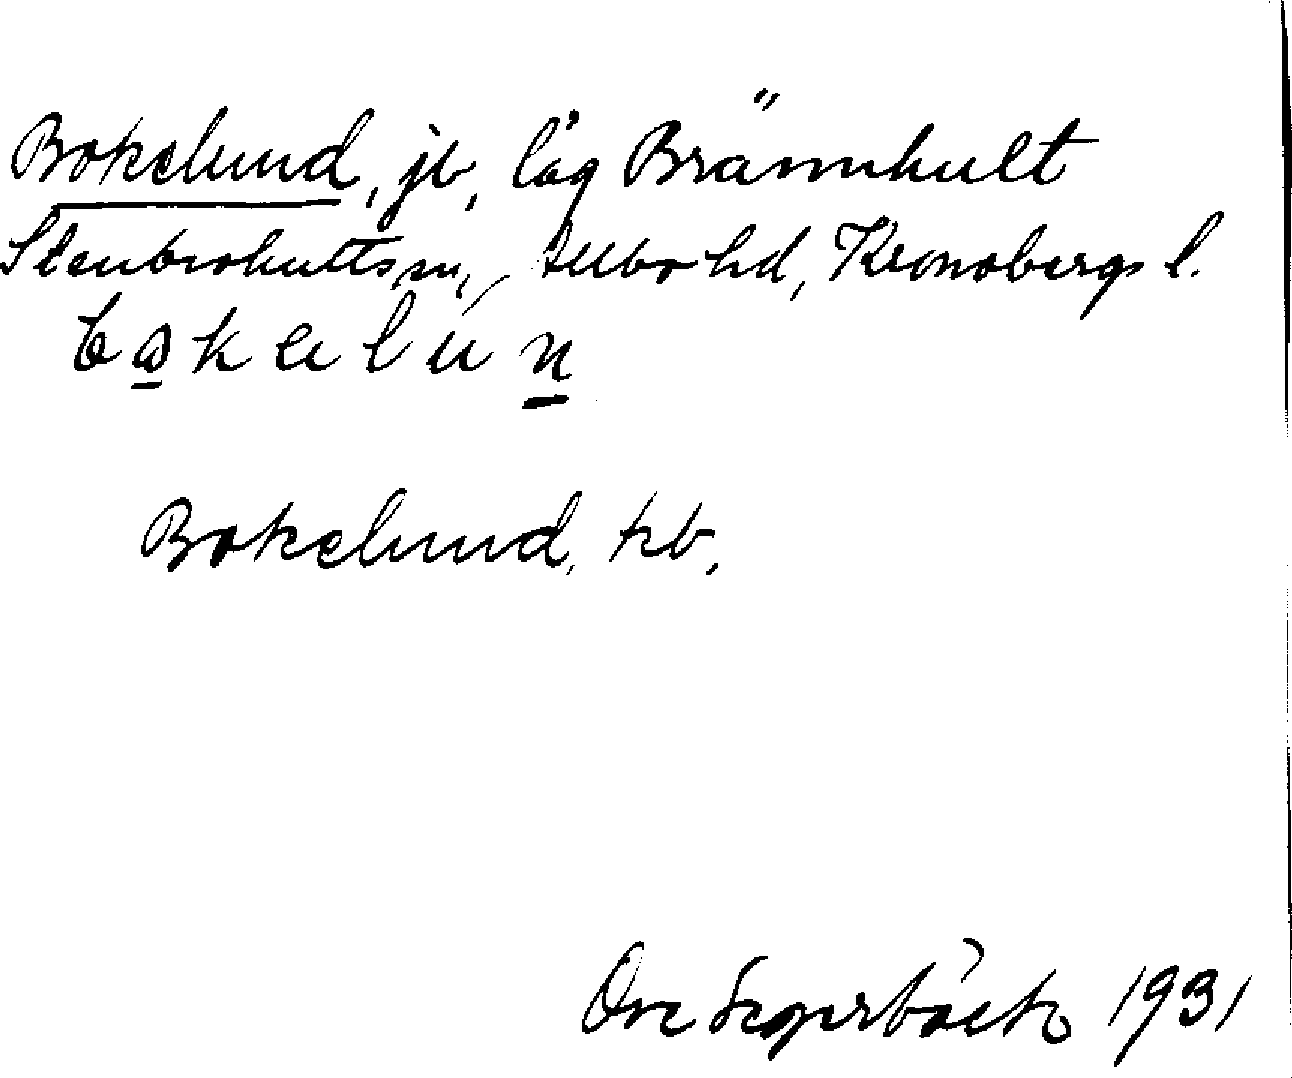 Bokelund, jb, låg Brännhult
Stenbrohults sn, Allbo hd, Kronobergs l.
b o k e l u n
Bokelund, kb,
Ove Segerbäck 1931